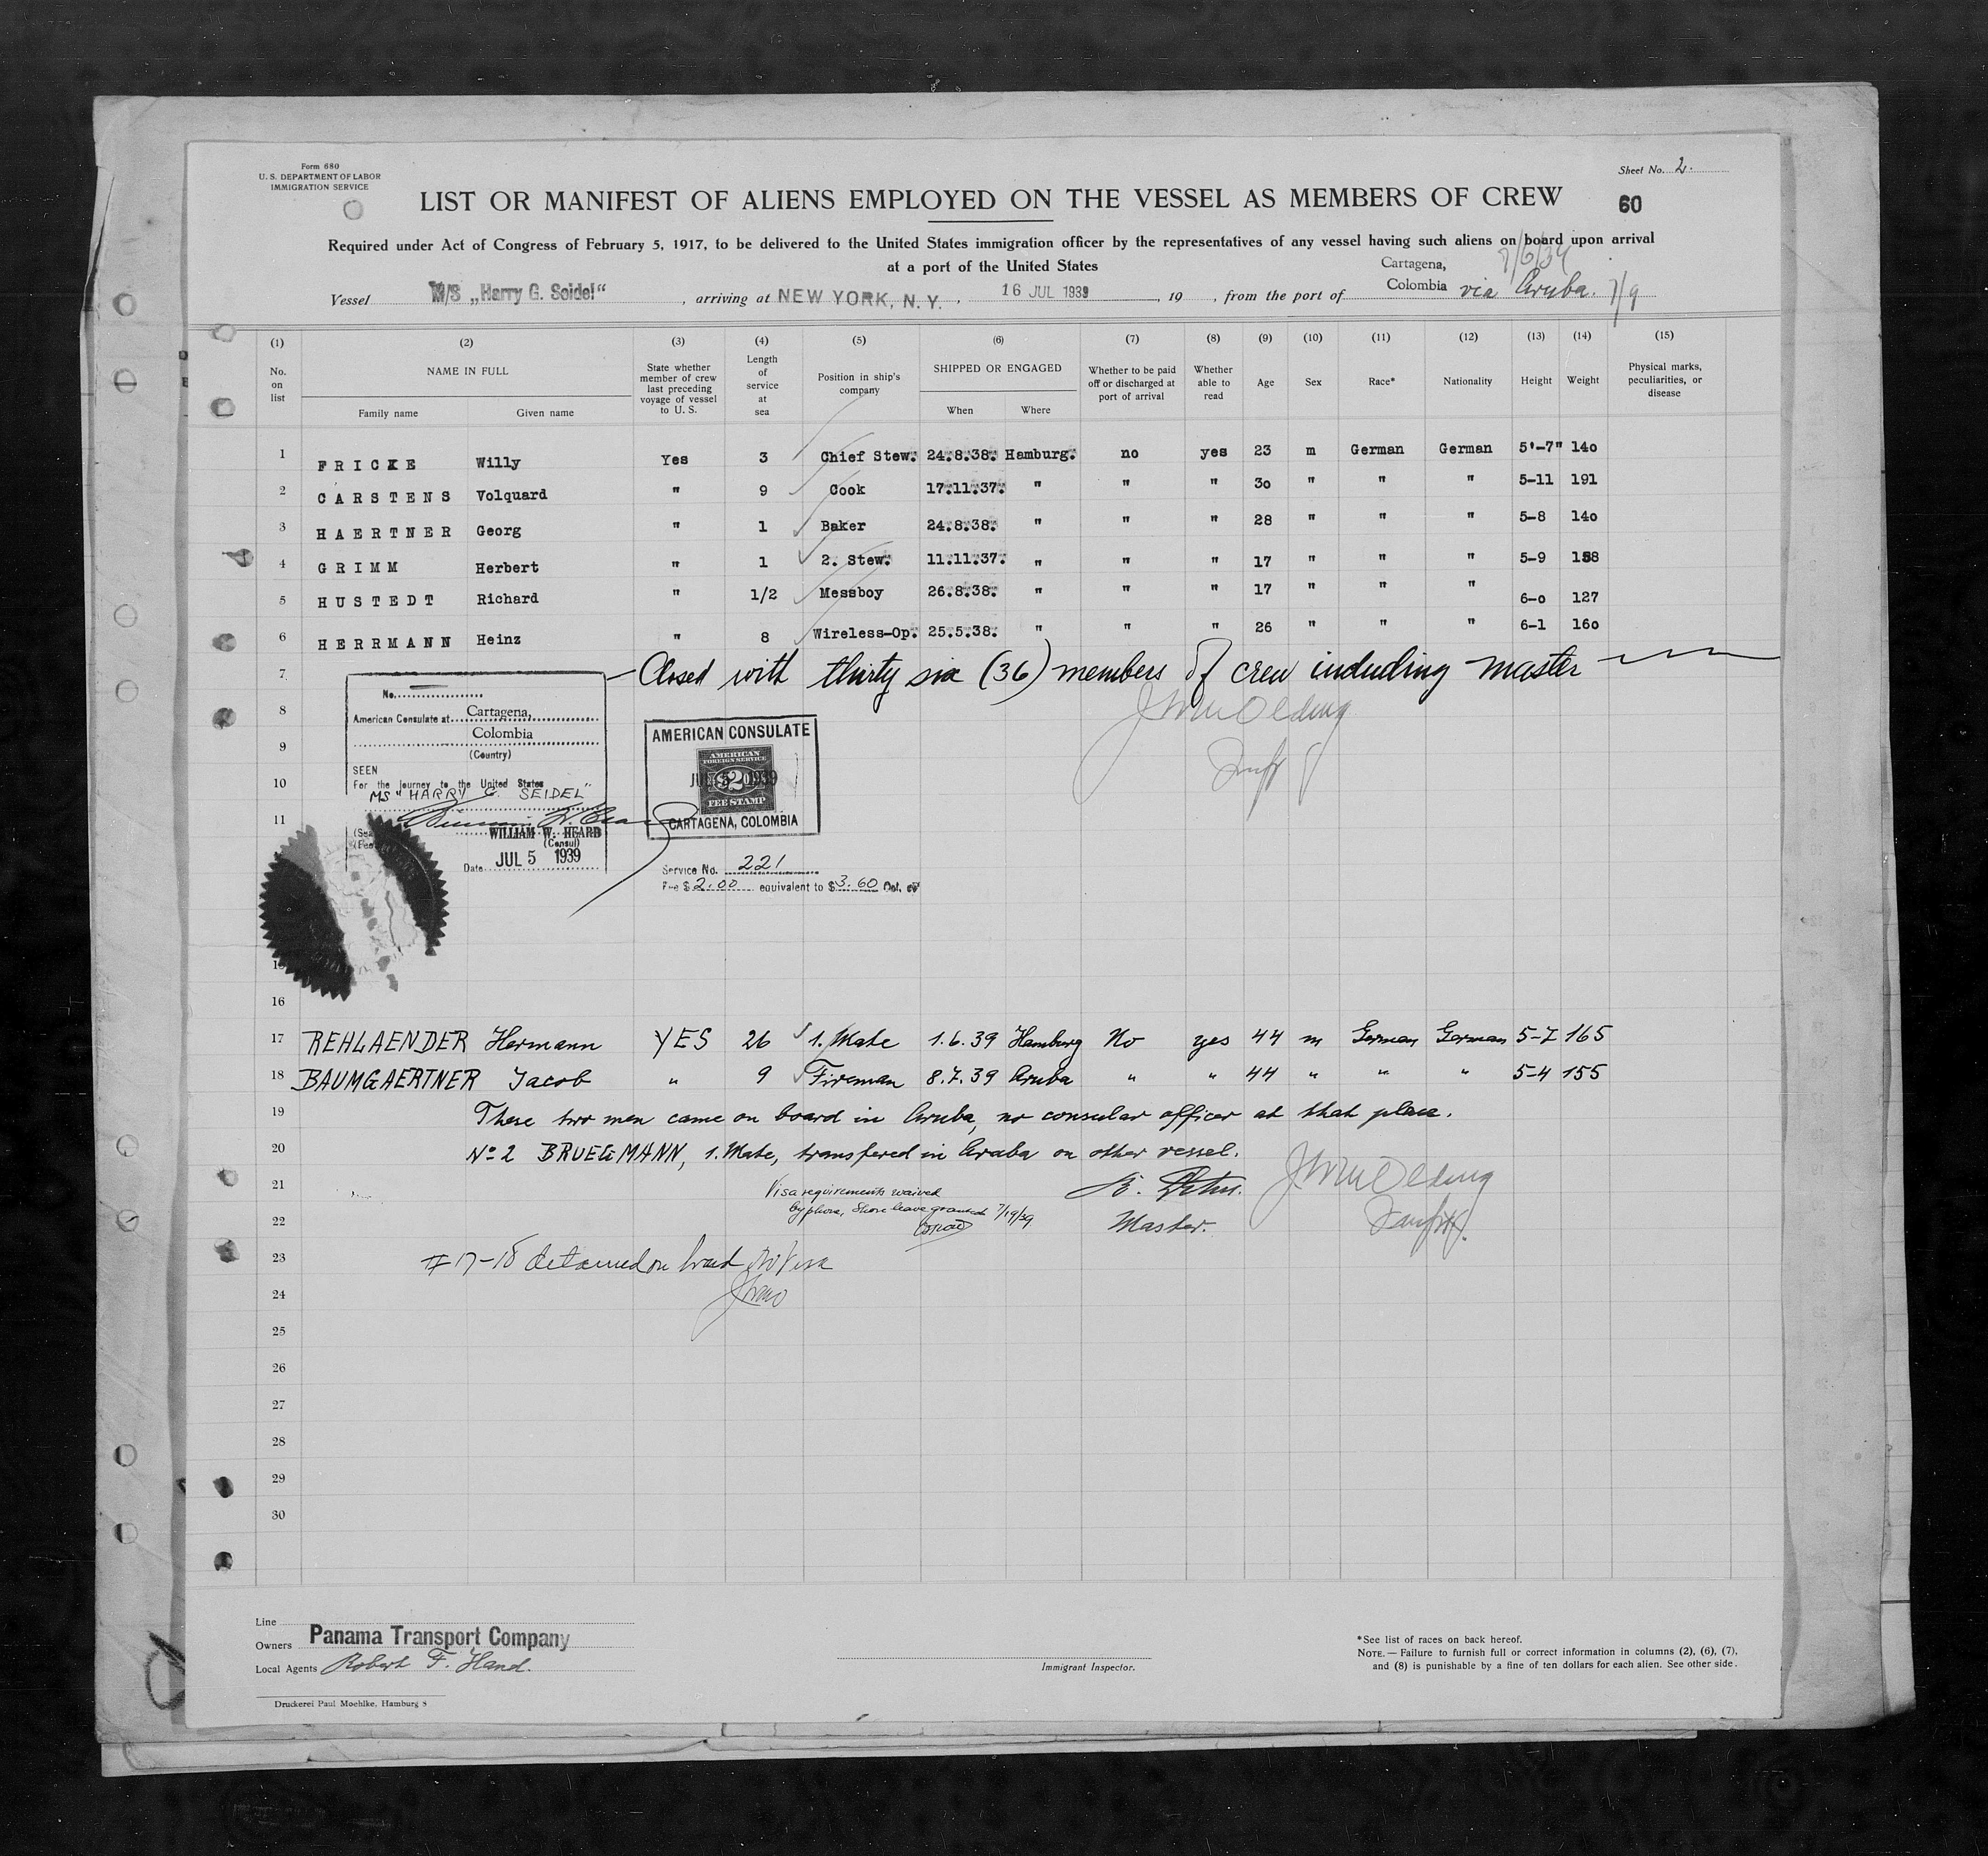 Form 680
U. S. DEPARTMENT OF LABOR
IMMIGRATION SERVICE
Sheet No. 2.
LIST OR MANIFEST OF ALIENS EMPLOYED ON THE VESSEL AS MEMBERS OF CREW
60
Required under Act of Congress of February 5, 1917, to be delivered to the United States immigration officer by the representatives of any vessel having such aliens on board upon arrival
at a port of the United States
Vessel M/S „Harry G. Seidel“, arriving at NEW YORK, N. Y., 16 JUL 1939, 19 , from the port of Cartagena, Colombia via Aruba. 7/9
(1) (2) (3) (4) (5) (6) (7) (8) (9) (10) (11) (12) (13) (14) (15)
No. on list
NAME IN FULL
Family name Given name
State whether member of crew last preceding voyage of vessel to U. S.
Length of service at sea
Position in ship's company
SHIPPED OR ENGAGED
When Where
Whether to be paid off or discharged at port of arrival
Whether able to read
Age
Sex
Race*
Nationality
Height
Weight
Physical marks, peculiarities, or disease
1 FRICKE Willy Yes 3 Chief Stew. 24.8.38. Hamburg. no yes 23 m German German 5'-7" 140
2 CARSTENS Volquard " 9 Cook 17.11.37. " " " 30 " " " 5-11 191
3 HAERTNER Georg " 1 Baker 24.8.38. " " " 28 " " " 5-8 140
4 GRIMM Herbert " 1 2. Stew. 11.11.37. " " " 17 " " " 5-9 158
5 HUSTEDT Richard " 1/2 Messboy 26.8.38. " " " 17 " " " 6-0 127
6 HERRMANN Heinz " 8 Wireless-Op. 25.5.38. " " " 26 " " " 6-1 160
7 Closed with thirty six (36) members of crew including master
8
9
10
11
No.
American Consulate at Cartagena,
Colombia
(Country)
SEEN
For the journey to the United States
MS "HARRY G. SEIDEL"
WILLIAM W. HEARD
(Consul)
Date JUL 5 1939
AMERICAN CONSULATE
AMERICAN
FOREIGN SERVICE
$2
FEE STAMP
CARTAGENA, COLOMBIA
Service No. 221
Fee $ 2.00 equivalent to $ 3.60
16
17 REHLAENDER Hermann YES 26 1. Mate 1.6.39 Hamburg No yes 44 m German German 5-7 165
18 BAUMGAERTNER Jacob " 9 Fireman 8.7.39 Aruba " " 44 " " " 5-4 155
19 These two men came on board in Aruba, no consular officer at that place.
20 No 2 BRUEGMANN, 1. Mate, transfered in Aruba on other vessel.
21 Visa requirements waived
by phone, Shore leave granted 7/19/39
22 Master.
23 # 17-18 detained on board no visa
24
25
26
27
28
29
30
Line
Owners Panama Transport Company
Local Agents Robert F. Hand.
Immigrant Inspector.
*See list of races on back hereof.
NOTE.— Failure to furnish full or correct information in columns (2), (6), (7),
and (8) is punishable by a fine of ten dollars for each alien. See other side.
Druckerei Paul Moehlke, Hamburg 8